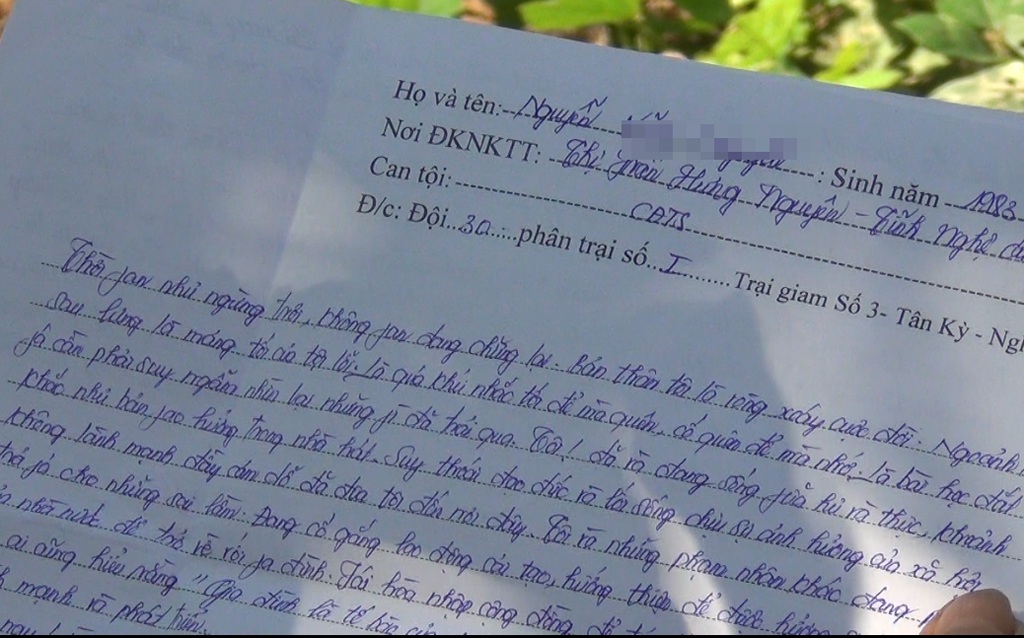 Họ và tên: Nguyễn : Sinh năm 1983
Nơi ĐKNKTT: Thị trấn Hưng Nguyên - Tỉnh Nghệ
Can tội:
Đ/c: Đội 30 phân trại số I Trại giam Số 3- Tân Kỳ - Ngh
Thời jan như ngừng trôi, không jan đang chững lại. Bản thân tôi là vòng xoáy cuộc đời. Ngoảnh
sau lưng là mảng tối của tội lỗi. Là quá khứ nhắc tới để mà quên, cố quên để mà nhớ, là bài học đắt
já cần phải suy ngẫm nhìn lại những jì đã trải qua. Tôi! đã và đang sống jữa hư và thực, khoảnh
khắc như bản jao hưởng trong nhà hát. Suy thoái đạo đức và lối sống chịu sự ảnh hưởng của xã hội
không lành mạnh đầy cám dỗ đã đưa tôi đến nơi đây. Tôi và những phạm nhân khác đang
trả já cho những sai lầm. Đang cố gắng lao động cải tạo, hướng thiện để được
nhà nước để trở về với ja đình. Tái hòa nhập cộng đồng
ai cũng hiểu rằng "Gia đình là tế bào của
mạnh và phát triển.